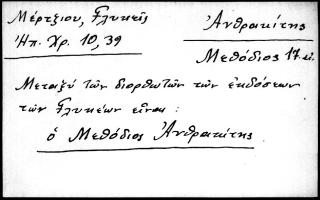 Μέρτζιου, Γλυκεῖς
Ἠπ. Χρ. 10, 39
Ἀνθρακίτης
Μεθόδιος 17 αἰ.
Μεταξὺ τῶν διορθωτῶν τῶν ἐκδόσεων
τῶν Γλυκέων εἶναι :
ὁ Μεθόδιος Ἀνθρακίτης